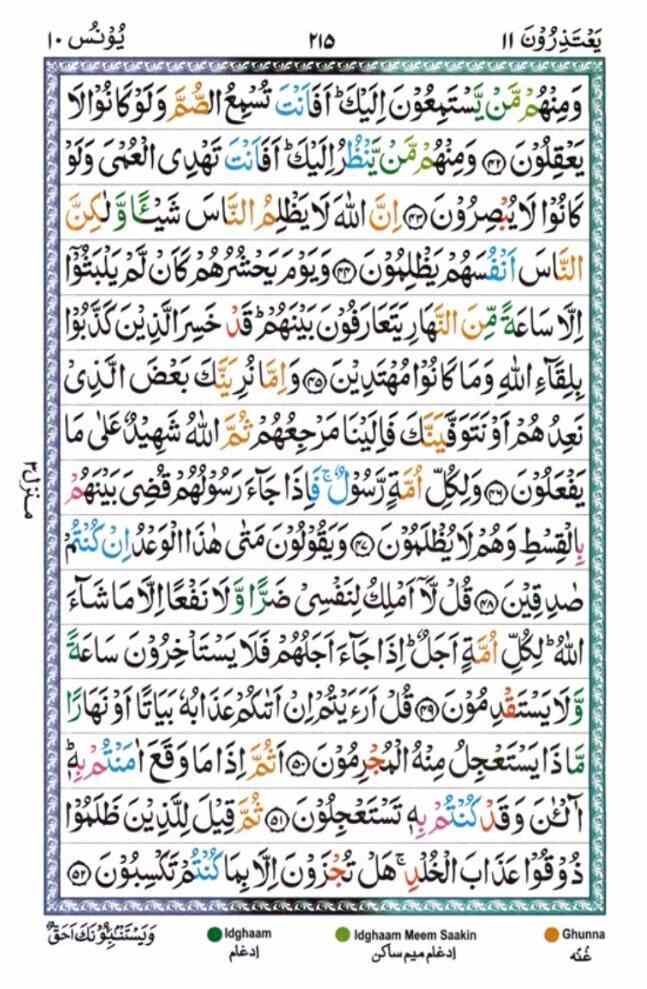 يَعْتَذِرُوْنَ ١١ ٢١٥ يُوْنُس ١٠
وَمِنْهُمْ مَّنْ يَّسْتَمِعُوْنَ اِلَيْكَ ؕ اَفَاَنْتَ تُسْمِعُ الصُّمَّ وَلَوْ كَانُوْا لَا
يَعْقِلُوْنَ ﴿۴۲﴾ وَمِنْهُمْ مَّنْ يَّنْظُرُ اِلَيْكَ ؕ اَفَاَنْتَ تَهْدِى الْعُمْىَ وَلَوْ
كَانُوْا لَا يُبْصِرُوْنَ ﴿۴۳﴾ اِنَّ اللّٰهَ لَا يَظْلِمُ النَّاسَ شَيْـًٔا وَّلٰكِنَّ
النَّاسَ اَنْفُسَهُمْ يَظْلِمُوْنَ ﴿۴۴﴾ وَيَوْمَ يَحْشُرُهُمْ كَاَنْ لَّمْ يَلْبَثُوْۤا
اِلَّا سَاعَةً مِّنَ النَّهَارِ يَتَعَارَفُوْنَ بَيْنَهُمْ ؕ قَدْ خَسِرَ الَّذِيْنَ كَذَّبُوْا
بِلِقَآءِ اللّٰهِ وَمَا كَانُوْا مُهْتَدِيْنَ ﴿۴۵﴾ وَاِمَّا نُرِيَنَّكَ بَعْضَ الَّذِىْ
نَعِدُهُمْ اَوْ نَتَوَفَّيَنَّكَ فَاِلَيْنَا مَرْجِعُهُمْ ثُمَّ اللّٰهُ شَهِيْدٌ عَلٰى مَا
يَفْعَلُوْنَ ﴿۴۶﴾ وَلِكُلِّ اُمَّةٍ رَّسُوْلٌ ۚ فَاِذَا جَآءَ رَسُوْلُهُمْ قُضِىَ بَيْنَهُمْ
بِالْقِسْطِ وَهُمْ لَا يُظْلَمُوْنَ ﴿۴۷﴾ وَيَقُوْلُوْنَ مَتٰى هٰذَا الْوَعْدُ اِنْ كُنْتُمْ
صٰدِقِيْنَ ﴿۴۸﴾ قُلْ لَّاۤ اَمْلِكُ لِنَفْسِىْ ضَرًّا وَّلَا نَفْعًا اِلَّا مَا شَآءَ
اللّٰهُ ؕ لِكُلِّ اُمَّةٍ اَجَلٌ ؕ اِذَا جَآءَ اَجَلُهُمْ فَلَا يَسْتَاْخِرُوْنَ سَاعَةً
وَّلَا يَسْتَقْدِمُوْنَ ﴿۴۹﴾ قُلْ اَرَءَيْتُمْ اِنْ اَتٰٮكُمْ عَذَابُهٗ بَيَاتًا اَوْ نَهَارًا
مَّاذَا يَسْتَعْجِلُ مِنْهُ الْمُجْرِمُوْنَ ﴿۵۰﴾ اَثُمَّ اِذَا مَا وَقَعَ اٰمَنْتُمْ بِهٖ ؕ
آٰلْـٰٔنَ وَقَدْ كُنْتُمْ بِهٖ تَسْتَعْجِلُوْنَ ﴿۵۱﴾ ثُمَّ قِيْلَ لِلَّذِيْنَ ظَلَمُوْا
ذُوْقُوْا عَذَابَ الْخُلْدِ ۚ هَلْ تُجْزَوْنَ اِلَّا بِمَا كُنْتُمْ تَكْسِبُوْنَ ﴿۵۲﴾
منزل ٣
وَيَسْتَنْۢبِـُٔوْنَكَ اَحَقٌّ
Idghaam Idghaam Meem Saakin Ghunna
ادغام ادغام میم ساکن غُنّه